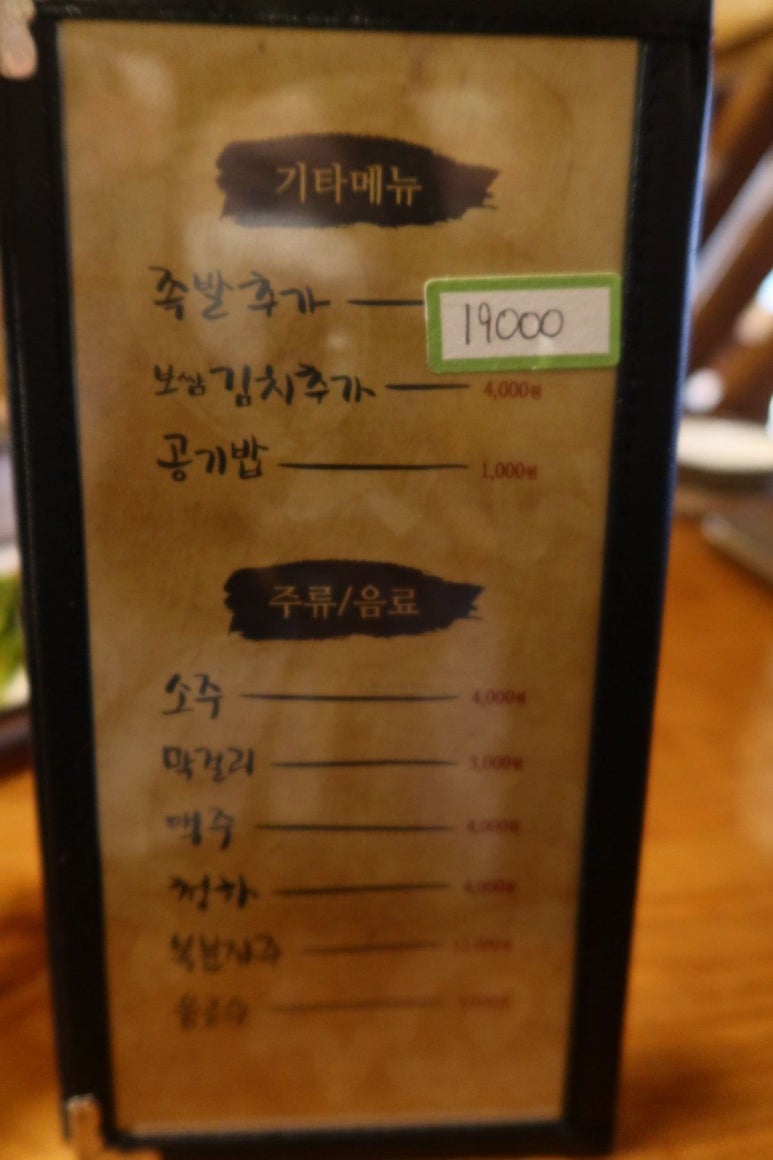 기타메뉴
족발추가 19000
보쌈김치추가 4,000원
공기밥 1,000원
주류/음료
소주 4,000원
막걸리 3,000원
맥주 4,000원
청하 4,000원
복분자주
음료수